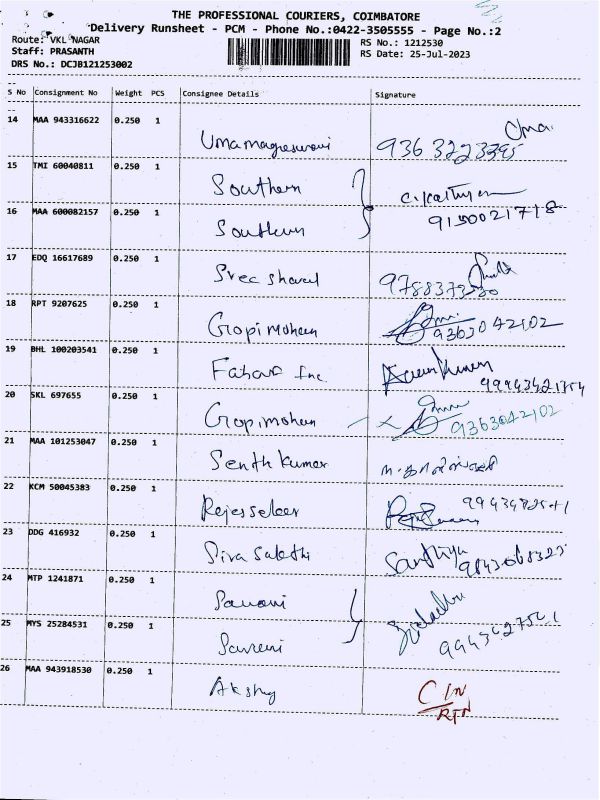 THE PROFESSIONAL COURIERS, COIMBATORE
Delivery Runsheet - PCM - Phone No.:0422-3505555 - Page No.:2
Route: VKL NAGAR RS No.: 1212530
Staff: PRASANTH RS Date: 25-Jul-2023
DRS No.: DCJB121253002
S No Consignment No Weight PCS Consignee Details Signature
14 MAA 943316622 0.250 1 Umamageswari 9363223395 Uma.
15 TMI 60040811 0.250 1 Southern
16 MAA 600082157 0.250 1 Southern 9150021718
17 EDQ 16617689 0.250 1 Sree sharal 9788373530
18 RPT 9207625 0.250 1 Gopi mohan 9363042102
19 BHL 100203541 0.250 1 Inc. 99943421754
20 SKL 697655 0.250 1 Gopi mohan 9363042102
21 MAA 101253047 0.250 1 Senthkumar
22 KCM 50045383 0.250 1
23 DDG 416932 0.250 1 Siva Sakthi Santhiya
24 MTP 1241871 0.250 1
25 MYS 25284531 0.250 1
26 MAA 943918530 0.250 1 Akshay C IN
RTN